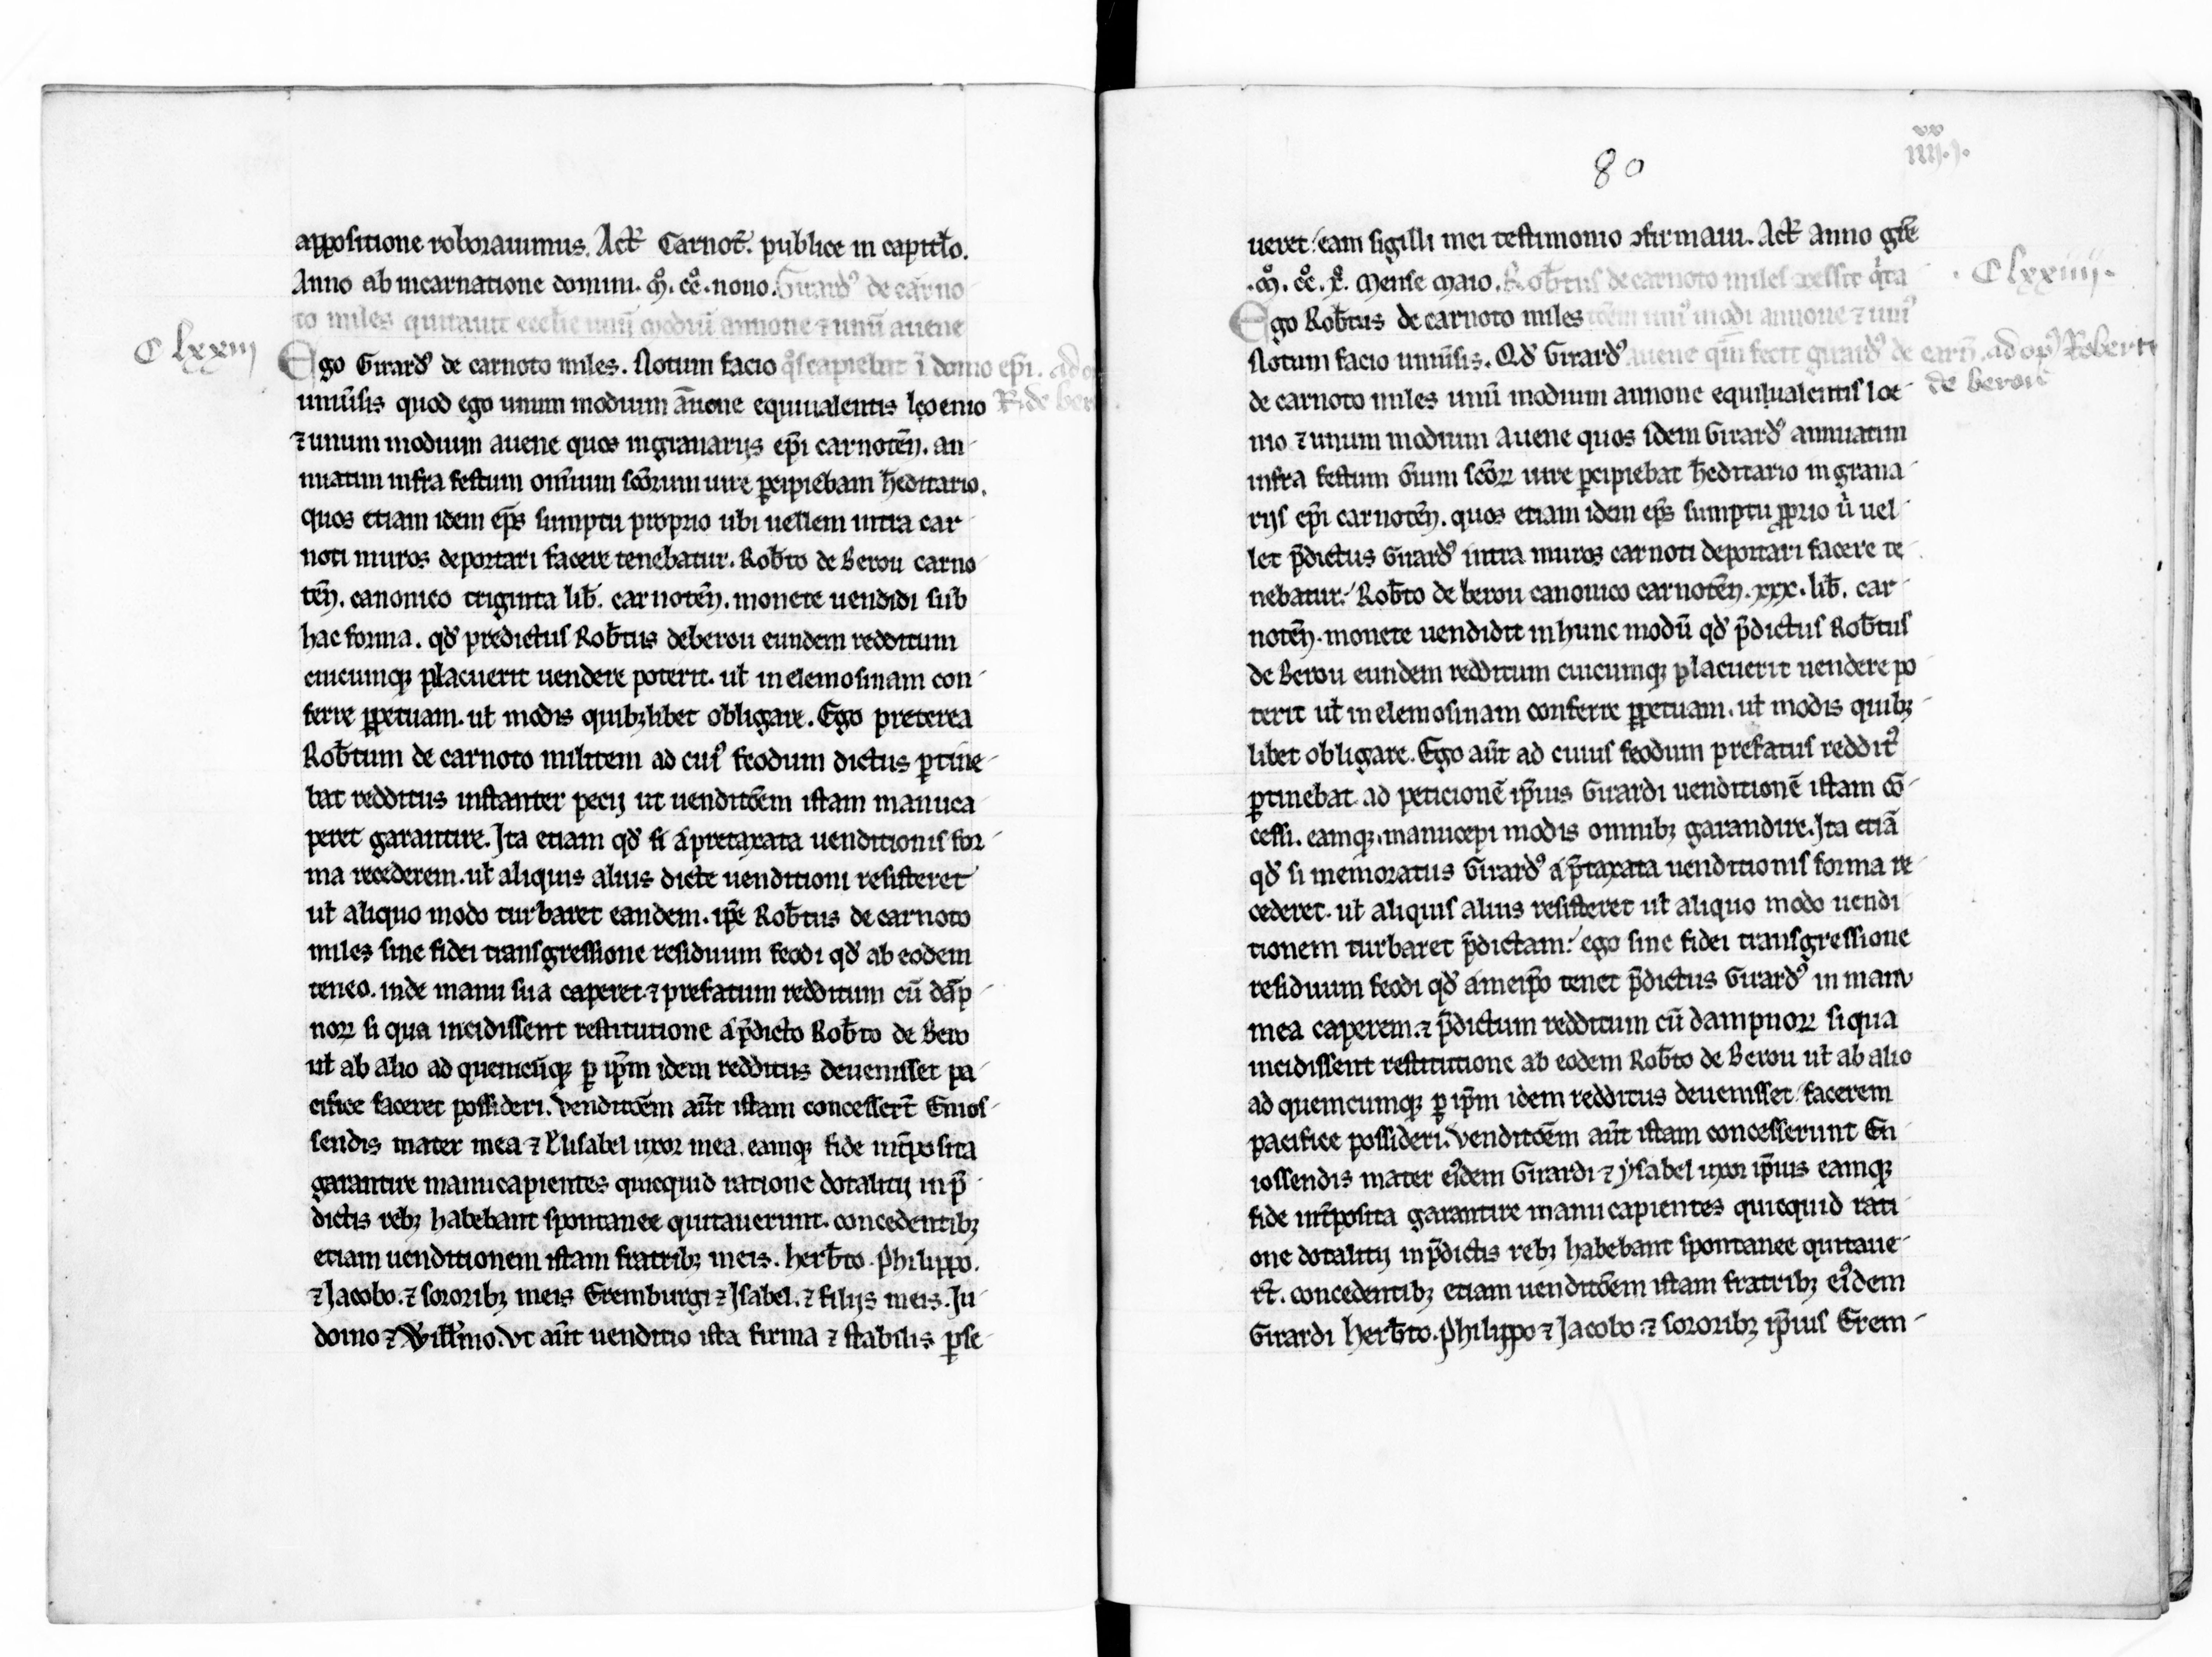 appositione roborauimus. Act̄ Carnot̄. publice in capitl̄o.
Anno ab incarnatione domini. ꝳ. cc̊. nono. Girardꝰ de carno
to miles quitauit eccl̄ie unū modiū annone ⁊ unū auene
C lxxiij
Ego Girardꝰ de carnoto miles. Notum facio q̊s capiebat ī domo ep̄i. ad
uniūsis quod ego unum modium ān̄one equiualentis loenio R. de
⁊ unum modium auene quos in granarijs ep̄i carnoteñ. an-
nuatim infra festum om̄ium sc̄orum iure ꝑcipiebam h̄editario.
quos etiam idem ep̄s sumptu proprio ubi uellem intra car-
noti muros deportari facere tenebatur. Rob̄to de Berou carno-
teñ. canonico triginta lib̄. carnoteñ. monete uendidi sub
hac forma. qd̄ predictus Rob̄tus de berou eundem redditum
cuicumqꝫ placuerit uendere poterit. ul̄ in elemosinam con-
ferre ꝑpetuam. ul̄ modis quibꝫlibet obligare. Ego preterea
Rob̄tum de carnoto militem ad cuiꝰ feodum dictus ꝑtine-
bat redditus instanter pecij ut uenditōem istam manuca-
peret garantire. Ita etiam qd̄ si a pretaxata uenditionis for-
ma recederem. ul̄ aliquis alius dicte uenditioni resisteret
ul̄ aliquo modo turbaret eandem. ip̄e Rob̄tus de carnoto
miles sine fidei transgressione residuum feodi qd̄ ab eodem
teneo. inde manu sua caperet. ⁊ prefatum redditum cū dāp-
noꝝ si qua incidissent restitutione a p̄dicto Rob̄to de Bero
ul̄ ab alio ad quemcūqꝫ ꝑ ip̄m idem redditus deuenisset pa-
cifice faceret possideri. Venditōem aūt istam concesser̄t Enios-
sendis mater mea ⁊ Elisabel uxor mea. eamqꝫ fide int̄posita
garantire manucapientes quicquid ratione dotalitij in p̄-
dictis rebꝫ habebant spontanee quitauerunt. concedentibꝫ
etiam uenditionem istam fratribꝫ meis. herb̄to. Philippo.
⁊ Jacobo. ⁊ sororibꝫ meis Eremburgi ⁊ Isabel. ⁊ filijs meis. Iu-
doino ⁊ Will̄mo. Vt aūt uenditio ista firma ⁊ stabilis ꝑse-
80
iiij.
ueret. eam sigilli mei testimonio ꝯfirmaui. Act̄ anno gr̄e
.ꝳ. cc̊. x̊. Mense Maio. Rob̄tus de carnoto miles
. C lxxiiij.
Ego Rob̄tus de carnoto miles uniꝰ modi annone ⁊ uniꝰ
Notum facio uniūsis. Qd̄ Girardꝰ auene fecit girardꝰ de carñ. ad opꝰ Roberti
de berou
de carnoto miles unū modium annone equiualentis loe-
nio. ⁊ unum modium auene quos idem Girardꝰ annuatim
infra festum ōium sc̄oꝝ iure ꝑcipiebat h̄editario in grana-
rijs ep̄i carnoteñ. quos etiam idem ep̄s sumptu ꝓprio u̇ uel-
let p̄dictus Girardꝰ intra muros carnoti deportari facere te-
nebatur. Rob̄to de berou canonico carnoteñ. xxx. lib̄. car-
noteñ. monete uendidit in hunc modū qd̄ p̄dictus Rob̄tus
de Berou eundem redditum cuicumqꝫ placuerit uendere po-
terit ul̄ in elemosinam conferre ꝑpetuam. ul̄ modis quibꝫ-
libet obligare. Ego aūt ad cuius feodum prefatus redditꝰ
ꝑtinebat ad peticionē ip̄ius Girardi uenditionē istam cō-
cessi. eamqꝫ manucepi modis omnibꝫ garandire. Ita etiā
qd̄ si memoratus Girardꝰ a p̄taxata uenditionis forma re-
cederet. ul̄ aliquis alius resisteret ul̄ aliquo modo uendi-
tionem turbaret p̄dictam. ego sine fidei transgressione
residuum feodi qd̄ a meip̄o tenet p̄dictus Girardꝰ in manu
mea caperem. ⁊ p̄dictum redditum cū dampnoꝝ siqua
incidissent restitutione ab eodem Rob̄to de Berou ul̄ ab alio
ad quemcumqꝫ ꝑ ip̄m idem redditus deuenisset. facerem
pacifice possideri. Venditōem aūt istam concesserunt En-
iossendis mater eiꝰdem Girardi ⁊ ysabel uxor ip̄ius eamqꝫ
fide int̄posita garantire manucapientes quicquid rati-
one dotalitij in p̄dictis rebꝫ habebant spontanee quitaue-
rt̄. concedentibꝫ etiam uenditōem istam fratribꝫ eiꝰdem
Girardi herb̄to. Philippo ⁊ Jacobo. ⁊ sororibꝫ ip̄ius Erem-